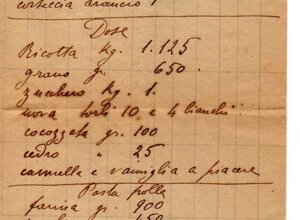 corteccia arancio 1
Dose
Ricotta Kg. 1.125
grano gr. 650.
zucchero Kg. 1.
uova torli 10 e 4 bianchi
cocozzata gr. 100
cedro " 25
cannella e vaniglia a piacere
Pasta frolla
farina gr. 900
450